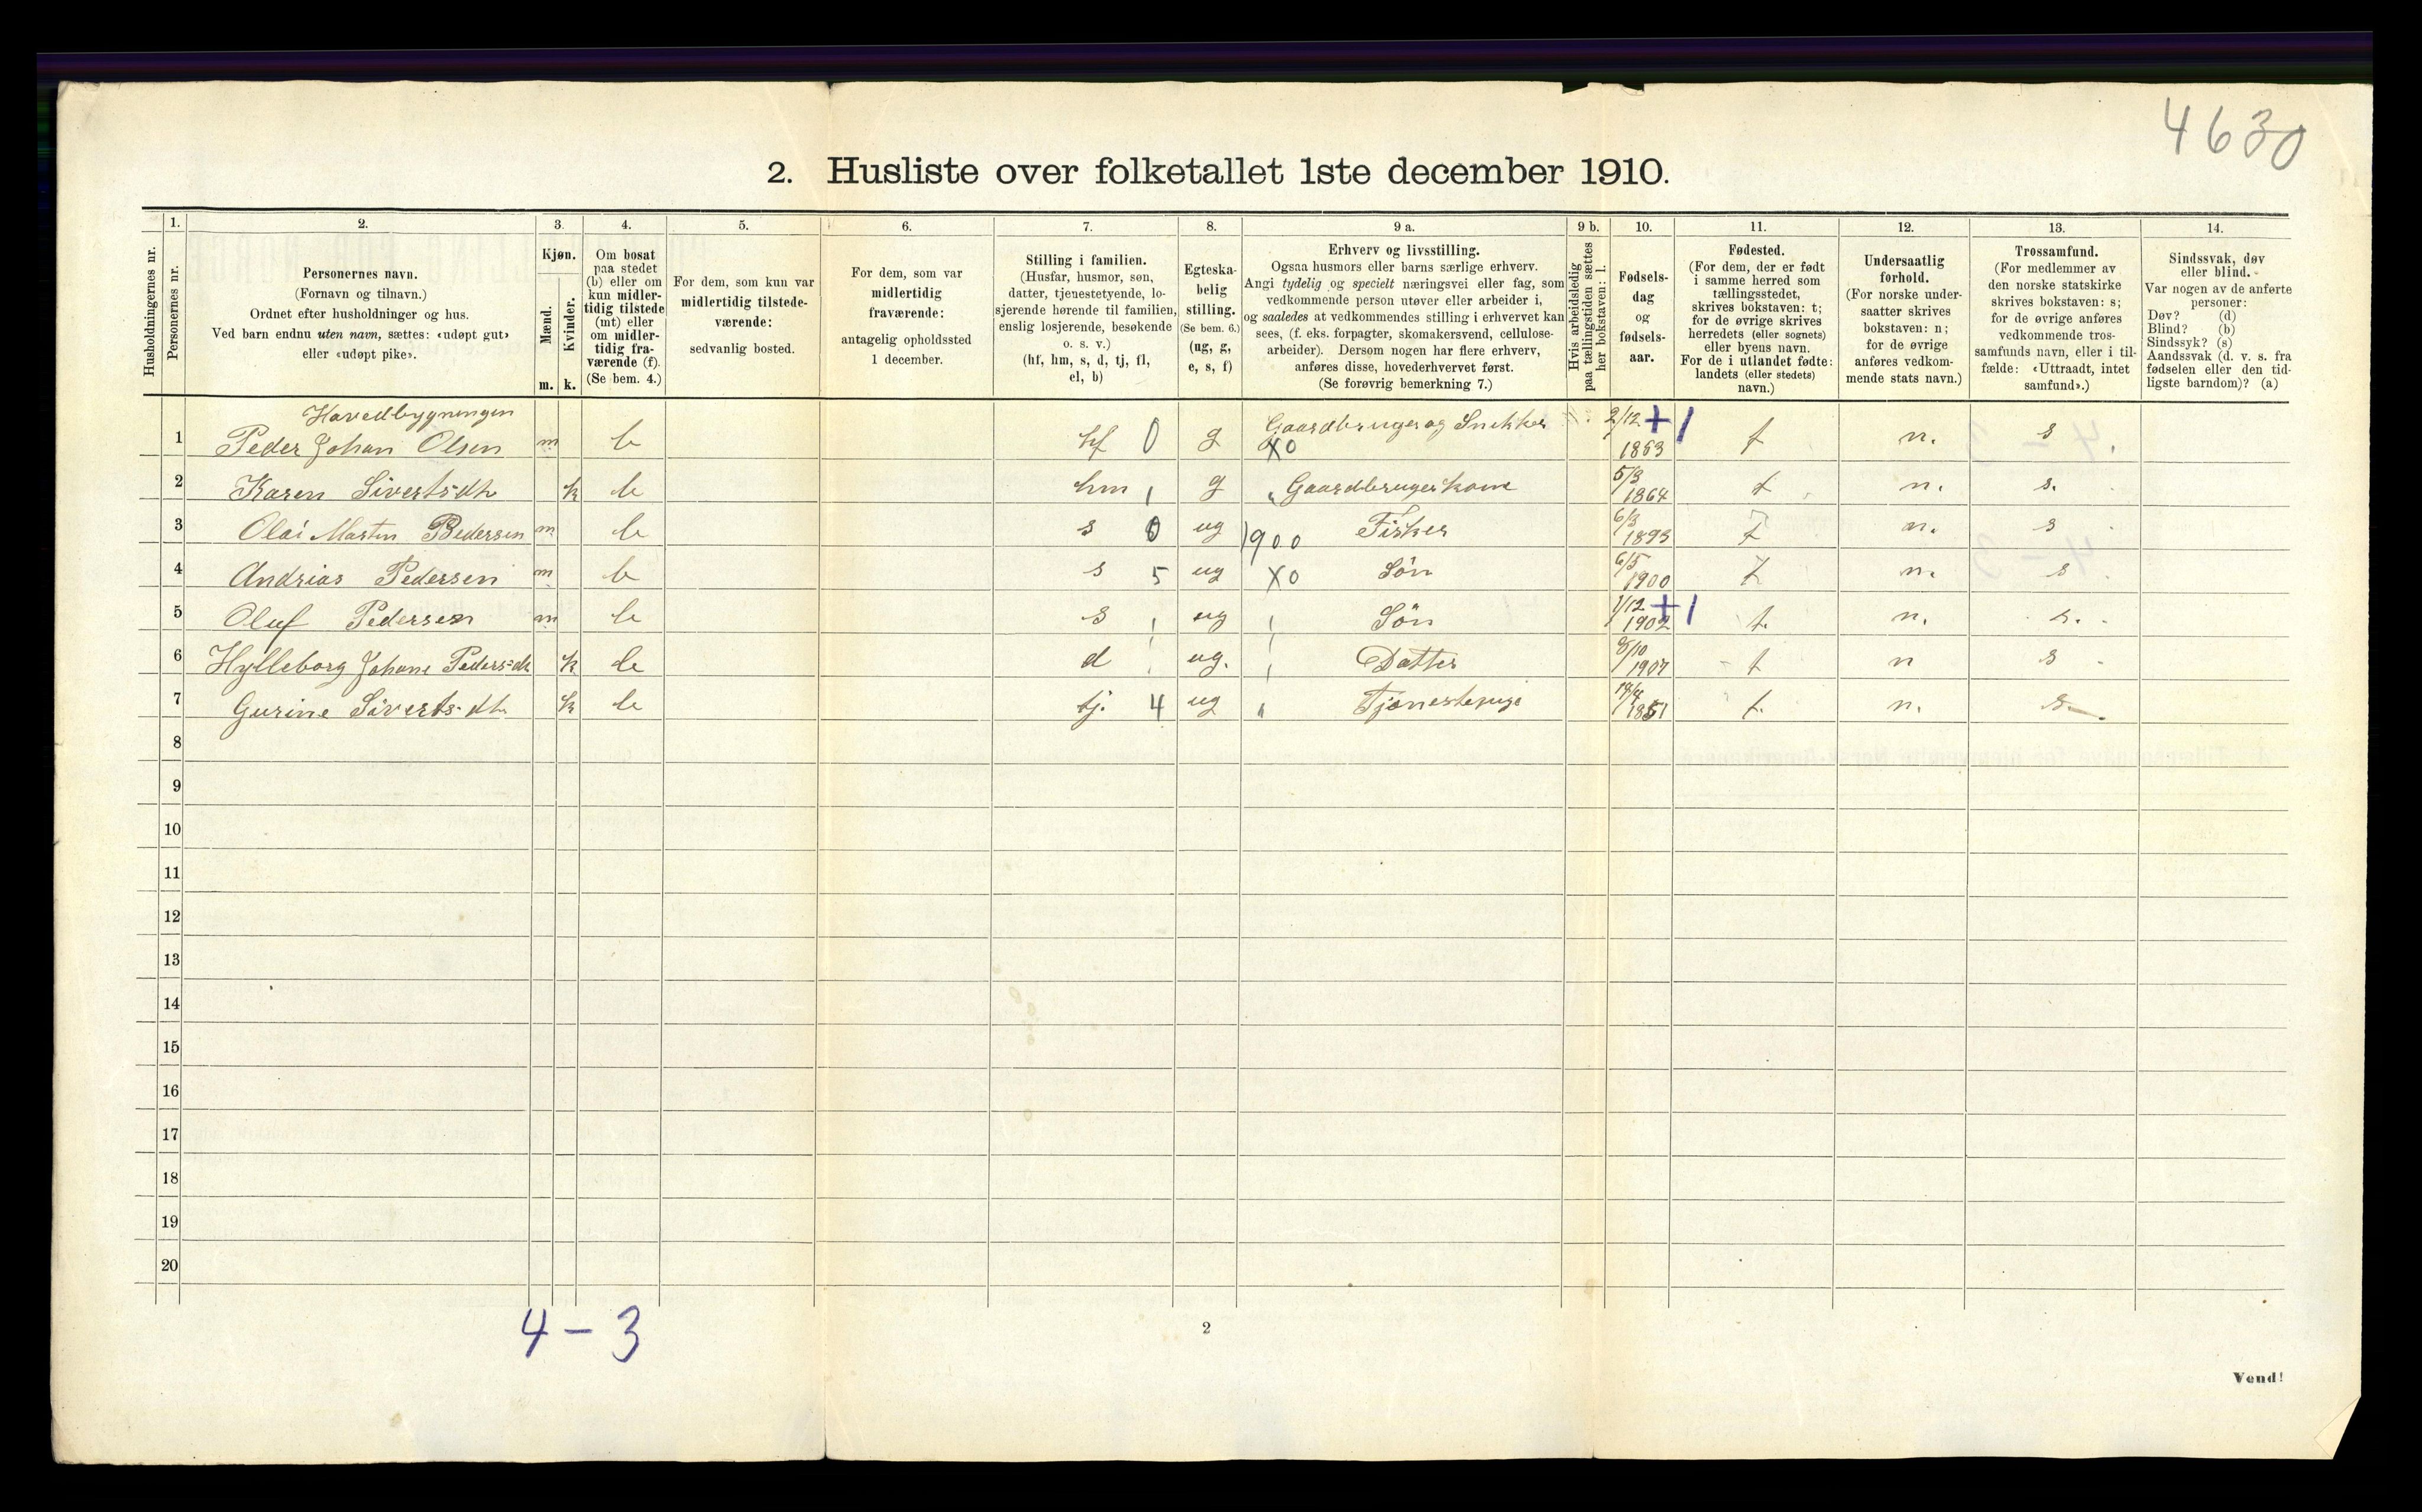 4630
2. Husliste over folketallet 1ste december 1910.
Husholdningernes nr.
1.
Personernes nr.
2.
Personernes navn.
(Fornavn og tilnavn.)
Ordnet efter husholdninger og hus.
Ved barn endnu uten navn, sættes: «udøpt gut»
eller «udøpt pike».
3.
Kjøn.
Mænd.
m.
Kvinder.
k.
4.
Om bosat
paa stedet
(b) eller om
kun midler-
tidig tilstede
(mt) eller
om midler-
tidig fra-
værende (f).
(Se bem. 4.)
5.
For dem, som kun var
midlertidig tilstede-
værende:
sedvanlig bosted.
6.
For dem, som var
midlertidig
fraværende:
antagelig opholdssted
1 december.
7.
Stilling i familien.
(Husfar, husmor, søn,
datter, tjenestetyende, lo-
sjerende hørende til familien,
enslig losjerende, besøkende
o. s. v.)
(hf, hm, s, d, tj, fl,
el, b)
8.
Egteska-
belig
stilling.
(Se bem. 6.)
(ug, g,
e, s, f)
9 a.
Erhverv og livsstilling.
Ogsaa husmors eller barns særlige erhverv.
Angi tydelig og specielt næringsvei eller fag, som
vedkommende person utøver eller arbeider i,
og saaledes at vedkommendes stilling i erhvervet kan
sees, (f. eks. forpagter, skomakersvend, cellulose-
arbeider). Dersom nogen har flere erhverv,
anføres disse, hovederhvervet først.
(Se forøvrig bemerkning 7.)
9 b.
Hvis arbeidsledig
paa tællingstiden sættes
her bokstaven: l.
10.
Fødsels-
dag
og
fødsels-
aar.
11.
Fødested.
(For dem, der er født
i samme herred som
tællingsstedet,
skrives bokstaven: t;
for de øvrige skrives
herredets (eller sognets)
eller byens navn.
For de i utlandet fødte:
landets (eller stedets)
navn.)
12.
Undersaatlig
forhold.
(For norske under-
saatter skrives
bokstaven: n;
for de øvrige
anføres vedkom-
mende stats navn.)
13.
Trossamfund.
(For medlemmer av
den norske statskirke
skrives bokstaven: s;
for de øvrige anføres
vedkommende tros-
samfunds navn, eller i til-
fælde: «Uttraadt, intet
samfund».)
14.
Sindssvak, døv
eller blind.
Var nogen av de anførte
personer:
Døv? (d)
Blind? (b)
Sindssyk? (s)
Aandssvak (d. v. s. fra
fødselen eller den tid-
ligste barndom)? (a)
Hovedbygningen
1 Peder Johan Olsen m b hf 0 g Gaardbruger og Snekker X0 2/12 1863 +1 t n. s
2 Karen Sivertsdtr k b hm g Gaardbrugerkone 5/3 1864 t n. s.
3 Olai Martin Pedersen m b s 0 ug 1900 Fisker 6/3 1893 t n. s
4 Andrias Pedersen m b s 5 ug X0 Søn 6/5 1900 t n. s
5 Oluf Pedersen m b s ug Søn 1/12 1902 +1 t. n. s.
6 Hylleborg Johane Peders-dt k b d ug. Datter 1907 t n s
7 Gurine Siverts-dtr k b tj. 4 ug Tjenestepige 1851 t. n. s.
8
9
10
11
12
13
14
15
16
17
18
19
20
4 - 3
2
Vend!